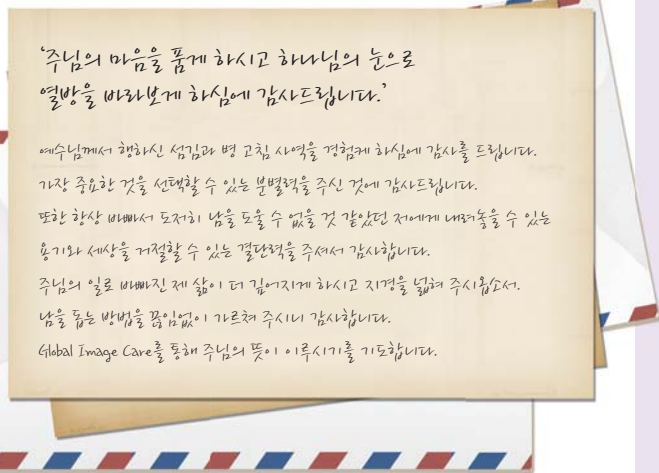 '주님의 마음을 품게 하시고 하나님의 눈으로
열방을 바라보게 하심에 감사드립니다.'
예수님께서 행하신 섬김과 병 고침 사역을 경험케 하심에 감사를 드립니다.
가장 중요한 것을 선택할 수 있는 분별력을 주신 것에 감사드립니다.
또한 항상 바빠서 도저히 남을 도울 수 없을 것 같았던 저에게 내려놓을 수 있는
용기와 세상을 거절할 수 있는 결단력을 주셔서 감사합니다.
주님의 일로 바빠진 제 삶이 더 깊어지게 하시고 지경을 넓혀 주시옵소서.
남을 돕는 방법을 끊임없이 가르쳐 주시니 감사합니다.
Global Image Care를 통해 주님의 뜻이 이루시기를 기도합니다.